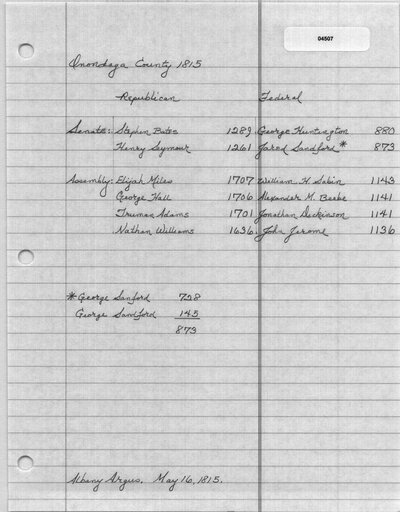 04507
Onondaga County 1815
Republican Federal
Senate: Stephen Bates 1289 George Huntington 880
Henry Seymour 1261 Jared Sandford * 873
Assembly: Elijah Miles 1707 William H. Sabin 1143
George Hall 1706 Alexander M. Beebe 1141
Truman Adams 1701 Jonathan Dickinson 1141
Nathan Williams 1636 John Jerome 1136
* George Sanford 728
George Sandford 145
873
Albany Argus. May 16, 1815.